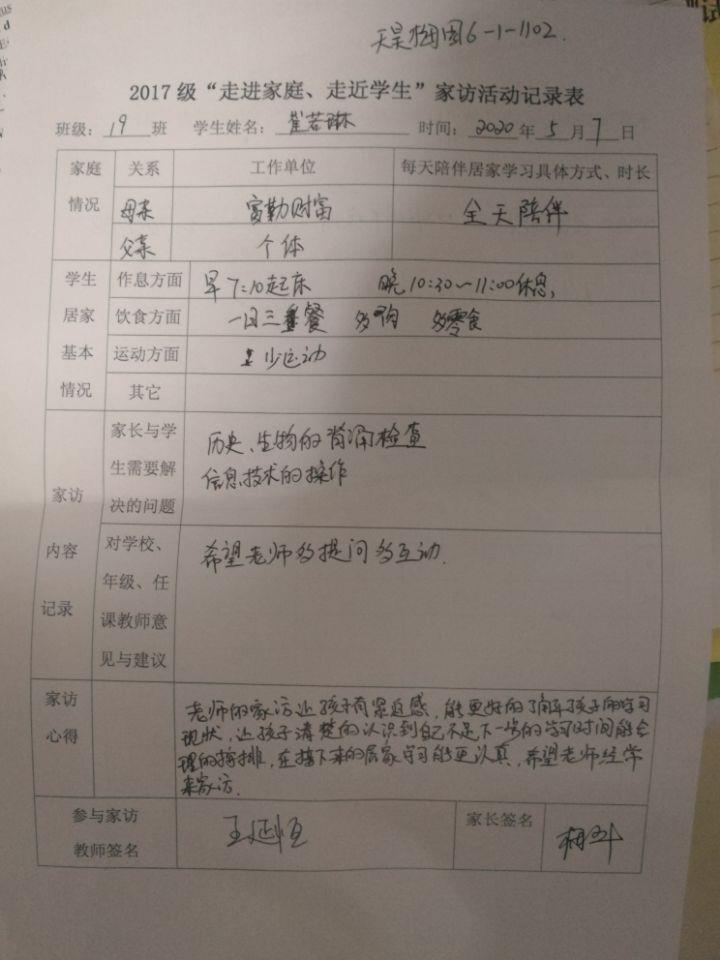 天昊梅园6-1-1102.
2017级“走进家庭、走近学生”家访活动记录表
班级：19班 学生姓名：崔若琳 时间：2020年5月7日
家庭情况 关系 工作单位 每天陪伴居家学习具体方式、时长
母亲 富勒财富 全天陪伴
父亲 个体
学生居家基本情况 作息方面 早7:10起床 晚10:30~11:00休息,
饮食方面 一日三餐 多肉 多零食
运动方面 少运动
其它
家访内容记录 家长与学生需要解决的问题 历史、生物的背诵检查
信息技术的操作
对学校、年级、任课教师意见与建议 希望老师多提问多互动.
家访心得 老师的家访让孩子有紧迫感，能更好的了解孩子的学习
现状，让孩子清楚的认识到自己不足下一步的学习时间能合
理的安排，在接下来的居家学习能更认真，希望老师经常
来家访.
参与家访教师签名 王延恒 家长签名